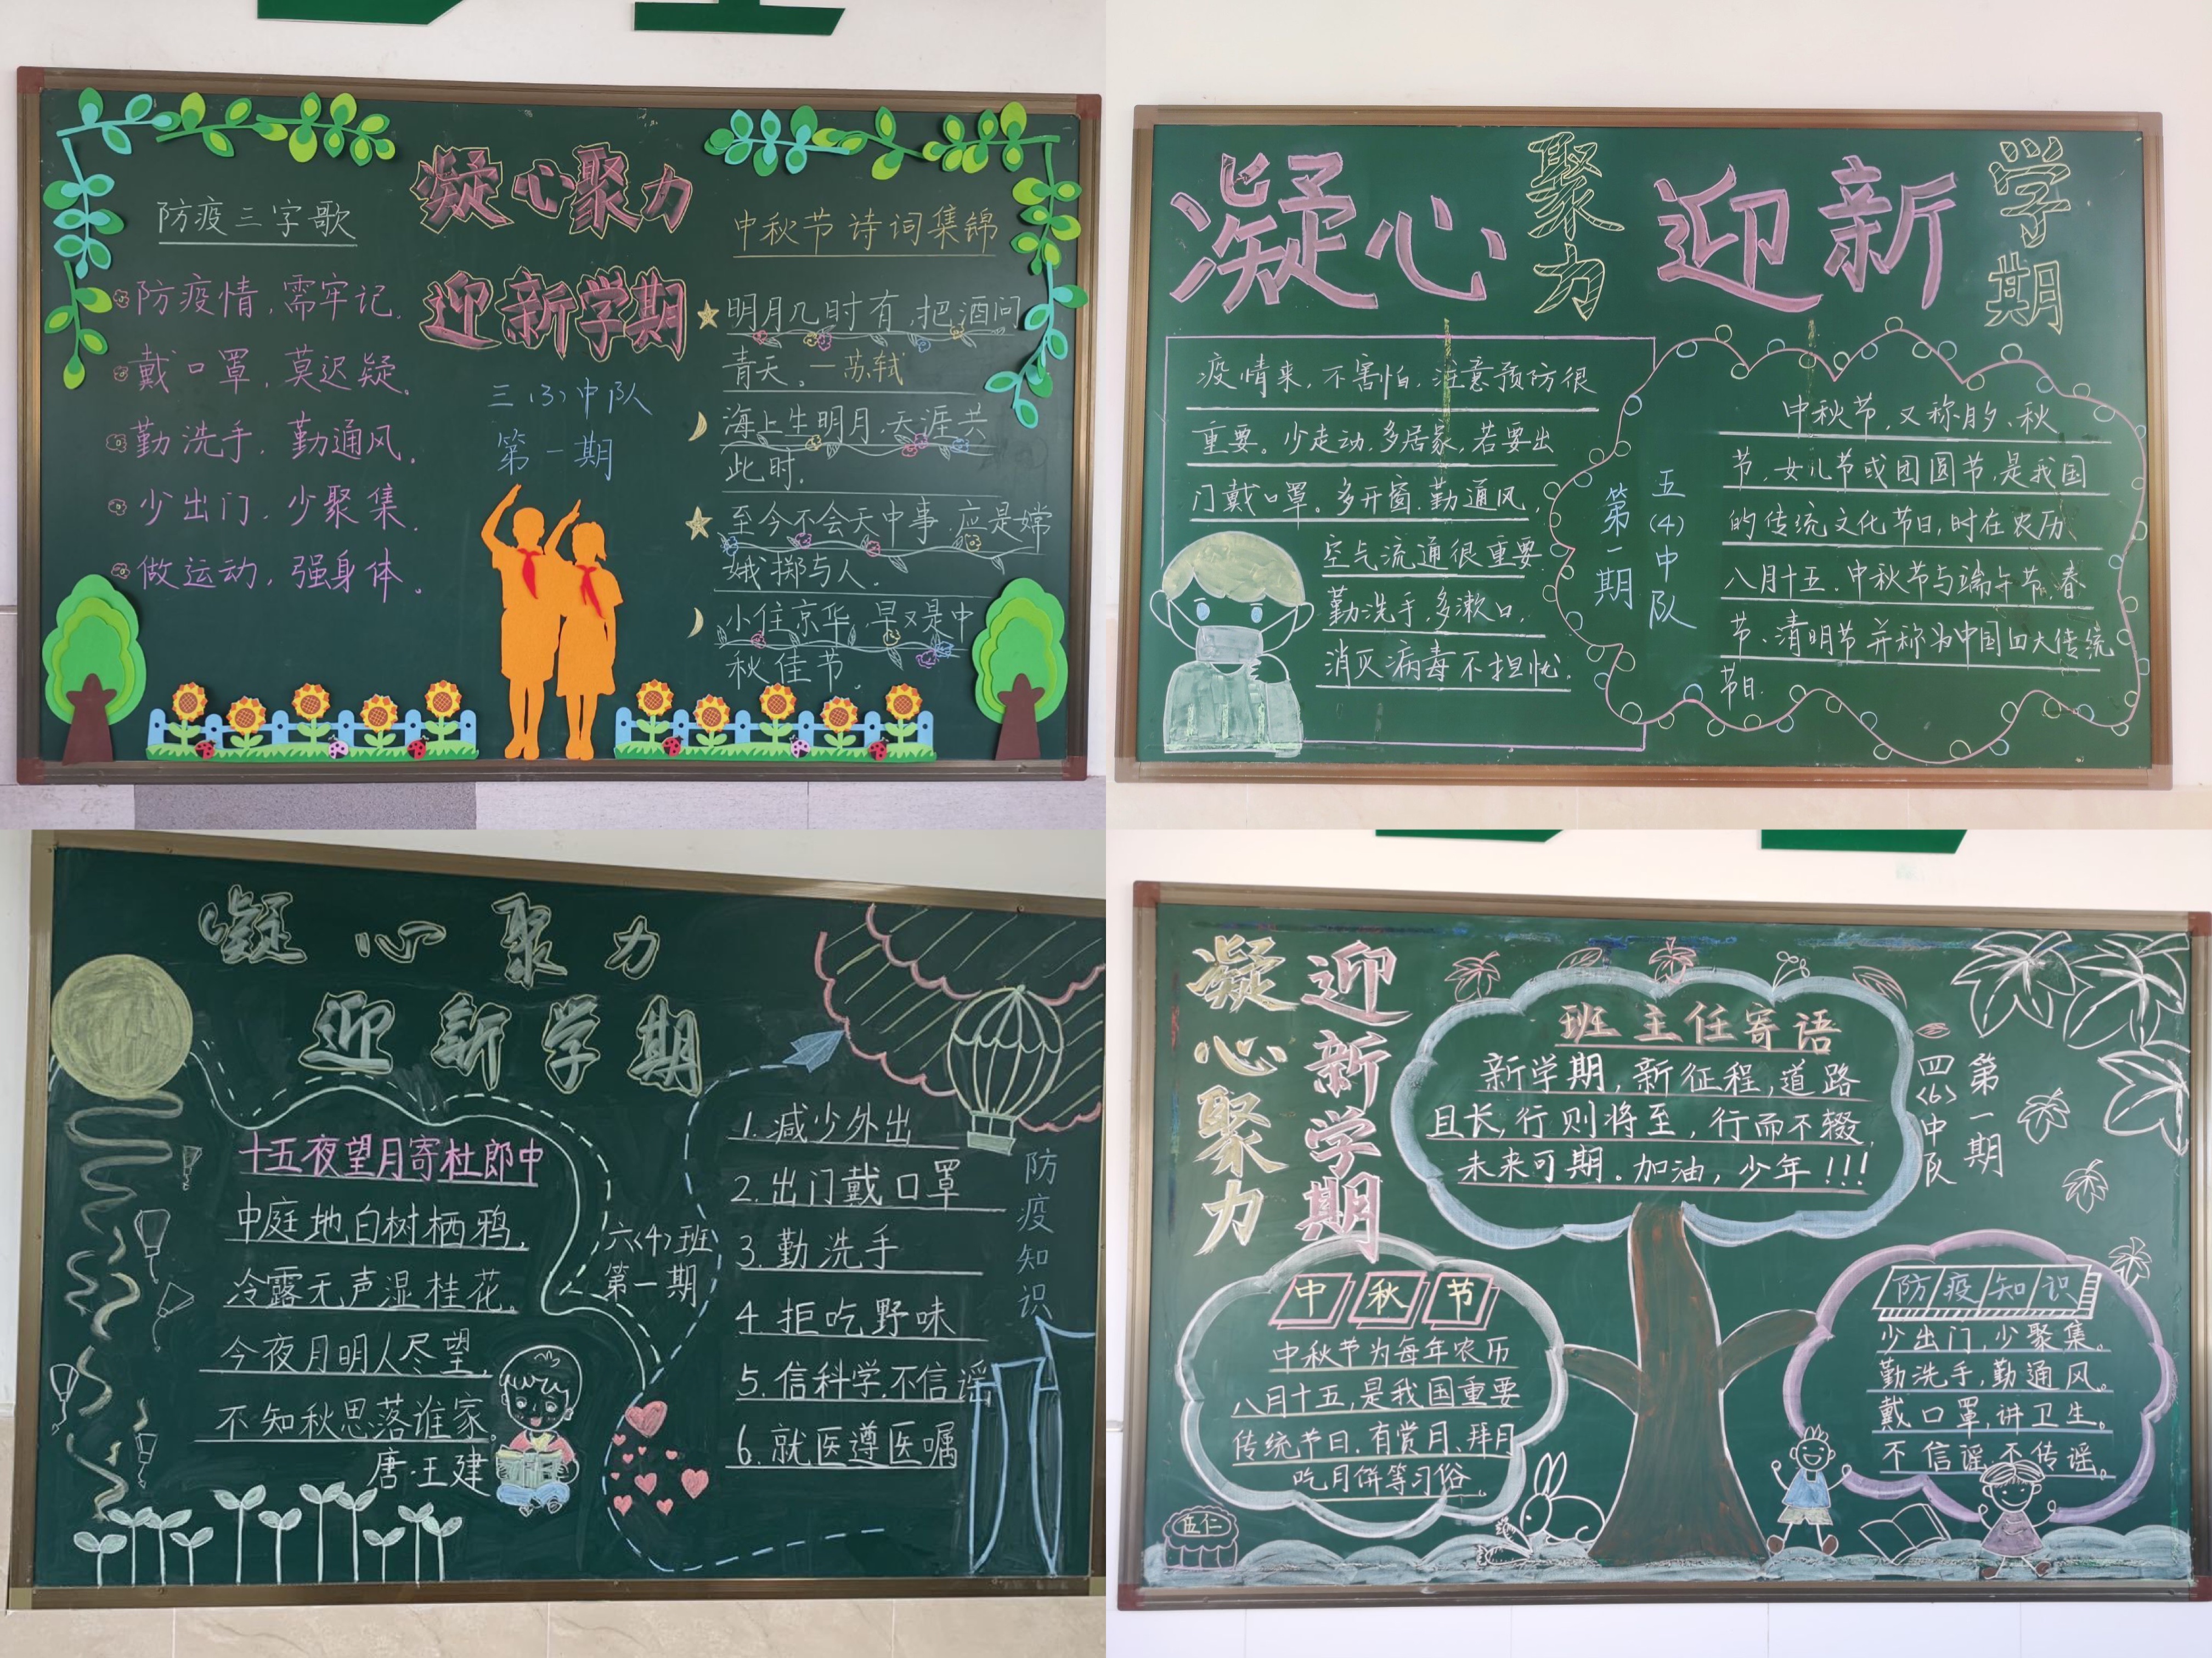 凝心聚力
迎新学期
三(3)中队
第一期
防疫三字歌
防疫情,需牢记.
戴口罩,莫迟疑.
勤洗手,勤通风.
少出门,少聚集.
做运动,强身体.
中秋节诗词集锦
明月几时有,把酒问
青天。—苏轼
海上生明月,天涯共
此时.
至今不会天中事,应是嫦
娥掷与人.
小住京华,早又是中
秋佳节.
凝心聚力迎新学期
疫情来,不害怕,注意预防很
重要。少走动,多居家,若要出
门戴口罩。多开窗,勤通风,
空气流通很重要.
勤洗手,多漱口,
消灭病毒不担忧.
五(4)中队
第一期
中秋节,又称月夕、秋
节、女儿节或团圆节,是我国
的传统文化节日,时在农历
八月十五.中秋节与端午节、春
节、清明节并称为中国四大传统
节日.
凝心聚力
迎新学期
十五夜望月寄杜郎中
中庭地白树栖鸦,
冷露无声湿桂花。
今夜月明人尽望,
不知秋思落谁家。
唐·王建
六<4>班
第一期
防疫知识
1.减少外出
2.出门戴口罩
3.勤洗手
4.拒吃野味
5.信科学,不信谣
6.就医遵医嘱
凝心聚力
迎新学期
班主任寄语
新学期,新征程,道路
且长,行则将至,行而不辍,
未来可期。加油,少年!!!
四<6>中队
第一期
中秋节
中秋节为每年农历
八月十五,是我国重要
传统节日.有赏月、拜月
吃月饼等习俗.
伍仁
防疫知识
少出门,少聚集。
勤洗手,勤通风。
戴口罩,讲卫生。
不信谣,不传谣。